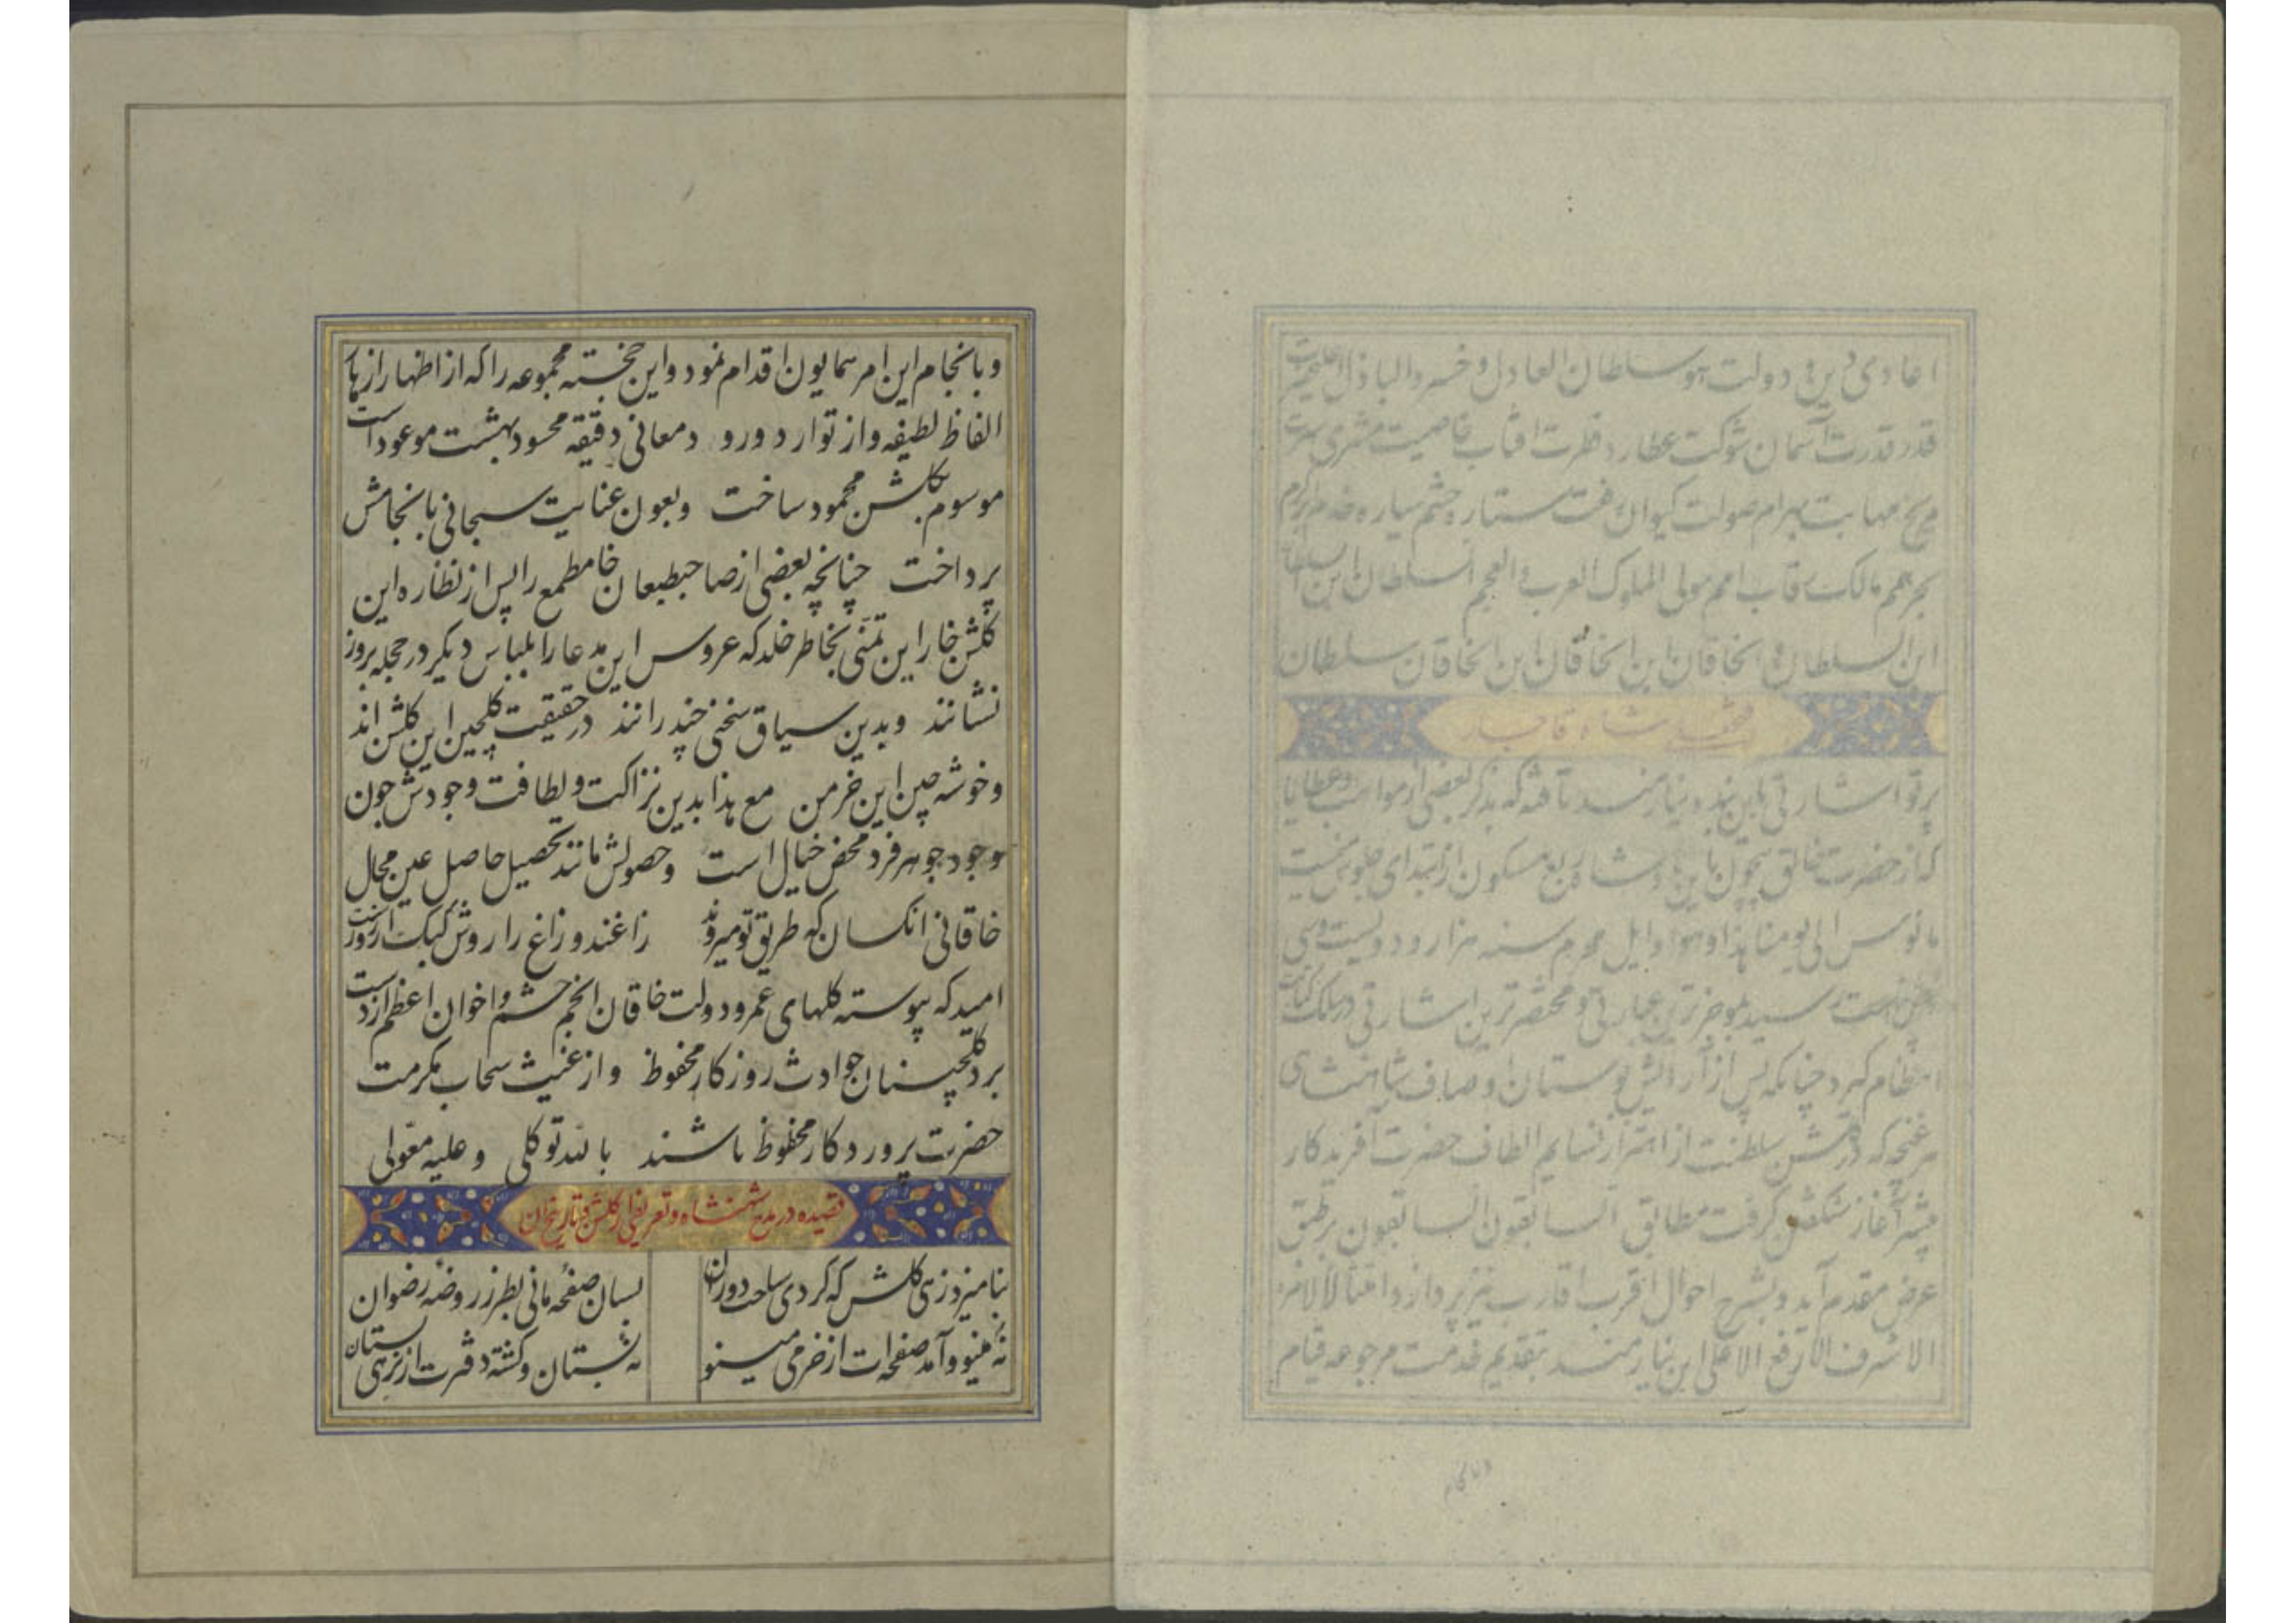 اعادی دین و دولت هو سلطان العادل و خسرو الباذل اعلیحضرت
قدر قدرت آسمان شوکت عطارد فطرت افتاب خاصیت مشتری سیرت
مریخ مهابت بهرام صولت کیوان رفعت ستاره حشم سیاره خدم
بحر همم مالک رقاب امم مولی الملوک العرب و العجم السلطان ابن السلطان
ابن السلطان و الخاقان ابن الخاقان ابن الخاقان سلطان
فتحعلی شاه قاجار
پرتو اشارتی باین بنده نیازمند تافته که بذکر بعضی از مواهب و عطایا
که از حضرت خالق بیچون باین پادشاه ربع مسکون از ابتدای جلوس میمنت
مانوس الی یومنا هذا و هو اوایل محرم سنه هزار و دویست و سی
هجریست رسیده بموجز ترین عبارتی و مختصر ترین اشارتی در سلک کتابت
انتظام گیرد چنانکه پس از آرایش بوستان اوصاف شاهنشاهی
هر غنچه که در گلشن سلطنت از اهتزاز نسایم الطاف حضرت آفریدکار
پیشتر آغاز شکفتن کرفت مطابق السابقون السابقون بر طبق
عرض مقدم آید و بشرح احوال اقرب اقارب نیز پردازد امتثالا لامره
الاشرف الارفع الاعلی این نیازمند بتقدیم خدمت مرجوعه قیام
و بانجام این امر همایون اقدام نمود و این خجسته مجموعه را که از اظهار ازهار
الفاظ لطیفه و از توارد ورود معانی دقیقه محسود بهشت موعود است
موسوم بکلشن محمود ساخت و بعون عنایت سبحانی بانجامش
پرداخت چنانچه بعضی از صاحبطبعان خام طمع را پس از نظاره این
کلشن خار این تمنی بخاطر خلد که عروس این مدعا را بلباس دیکر در حجله بروز
نشانند و بدین سیاق سخنی چند رانند در حقیقت کلچین این کلشن اند
و خوشه چین این خرمن مع هذا بدین نزاکت و لطافت وجودش چون
وجود جوهر فرد محض خیال است و حصولش مانند تحصیل حاصل عین محال
خاقانی انکسان که طریق تو میروند زاغند و زاغ را روش کبک آرزوست
امید که پیوسته کلهای عمر و دولت خاقان انجم حشم و اخوان اعظم از دست
برد کلچینان حوادث روزکار محفوظ و از غیث سحاب مکرمت
حضرت پروردکار محظوظ باشند بالله توکلی و علیه معولی
قصیده در مدح شهنشاه و تعریفی از کلشن و تاریخ آن
بنامیزد زهی کلشن که کردی ساحت دوران بسان صفحه مانی بطرز روضه رضوان
نه مینو و آمد صفحه ات از خرمی مینو نه بستان و کشته دفترت از نزهی بستان